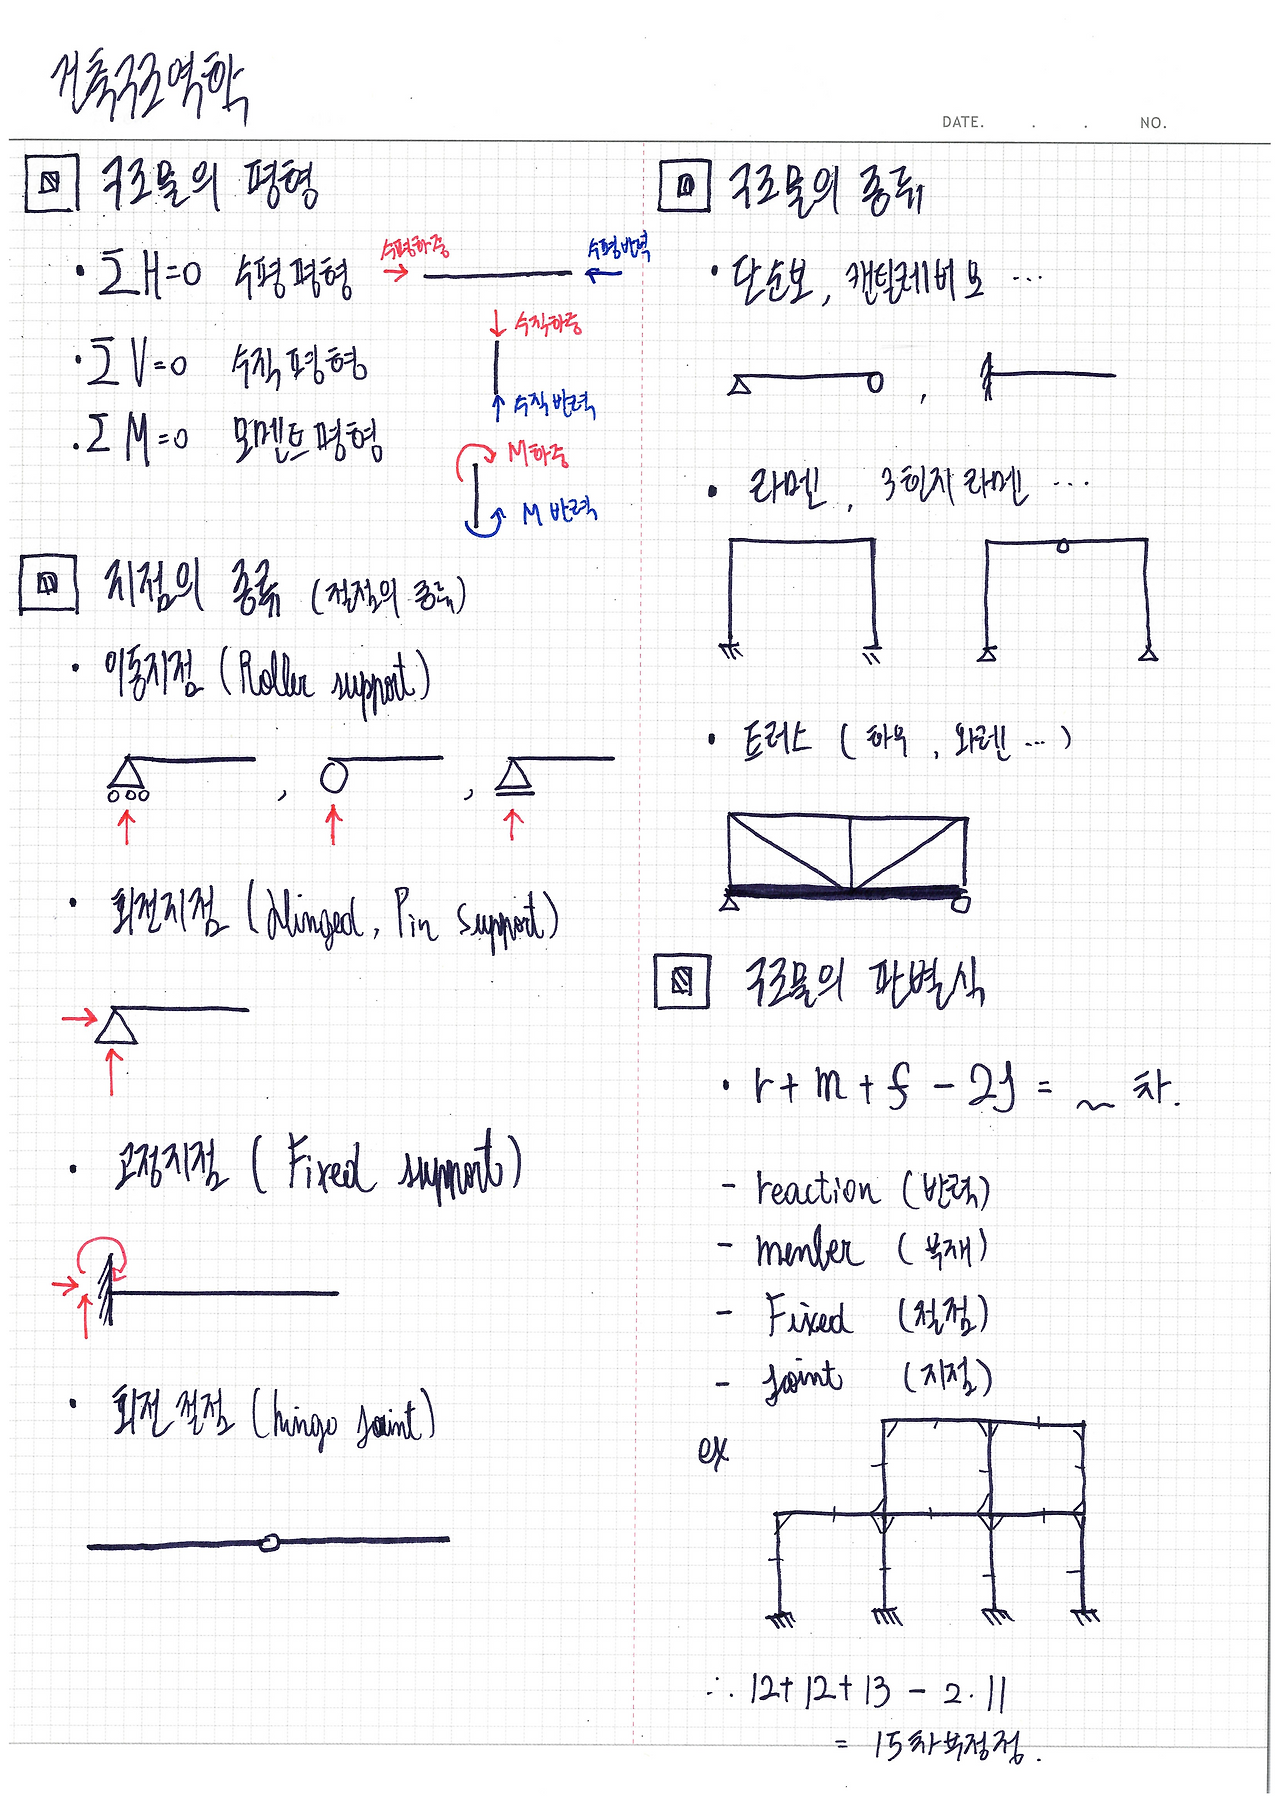 건축구조역학
DATE. . . NO.
구조물의 평형
· ΣH=0 수평평형
수평하중
수평반력
· ΣV=0 수직평형
수직하중
수직반력
· ΣM=0 모멘트평형
M하중
M반력
지점의 종류 (절점의 종류)
· 이동지점 (Roller support)
, ,
· 회전지점 (Hinged, Pin support)
· 고정지점 (Fixed support)
· 회전절점 (hinge joint)
구조물의 종류
· 단순보, 캔틸레버보 ...
,
· 라멘, 3힌지라멘 ...
· 트러스 (하우, 와렌 ...)
구조물의 판별식
· r + m + f - 2j = ~ 차.
- reaction (반력)
- member (부재)
- Fixed (절점)
- joint (지점)
ex
∴ 12+12+13 - 2·11
= 15차부정정.